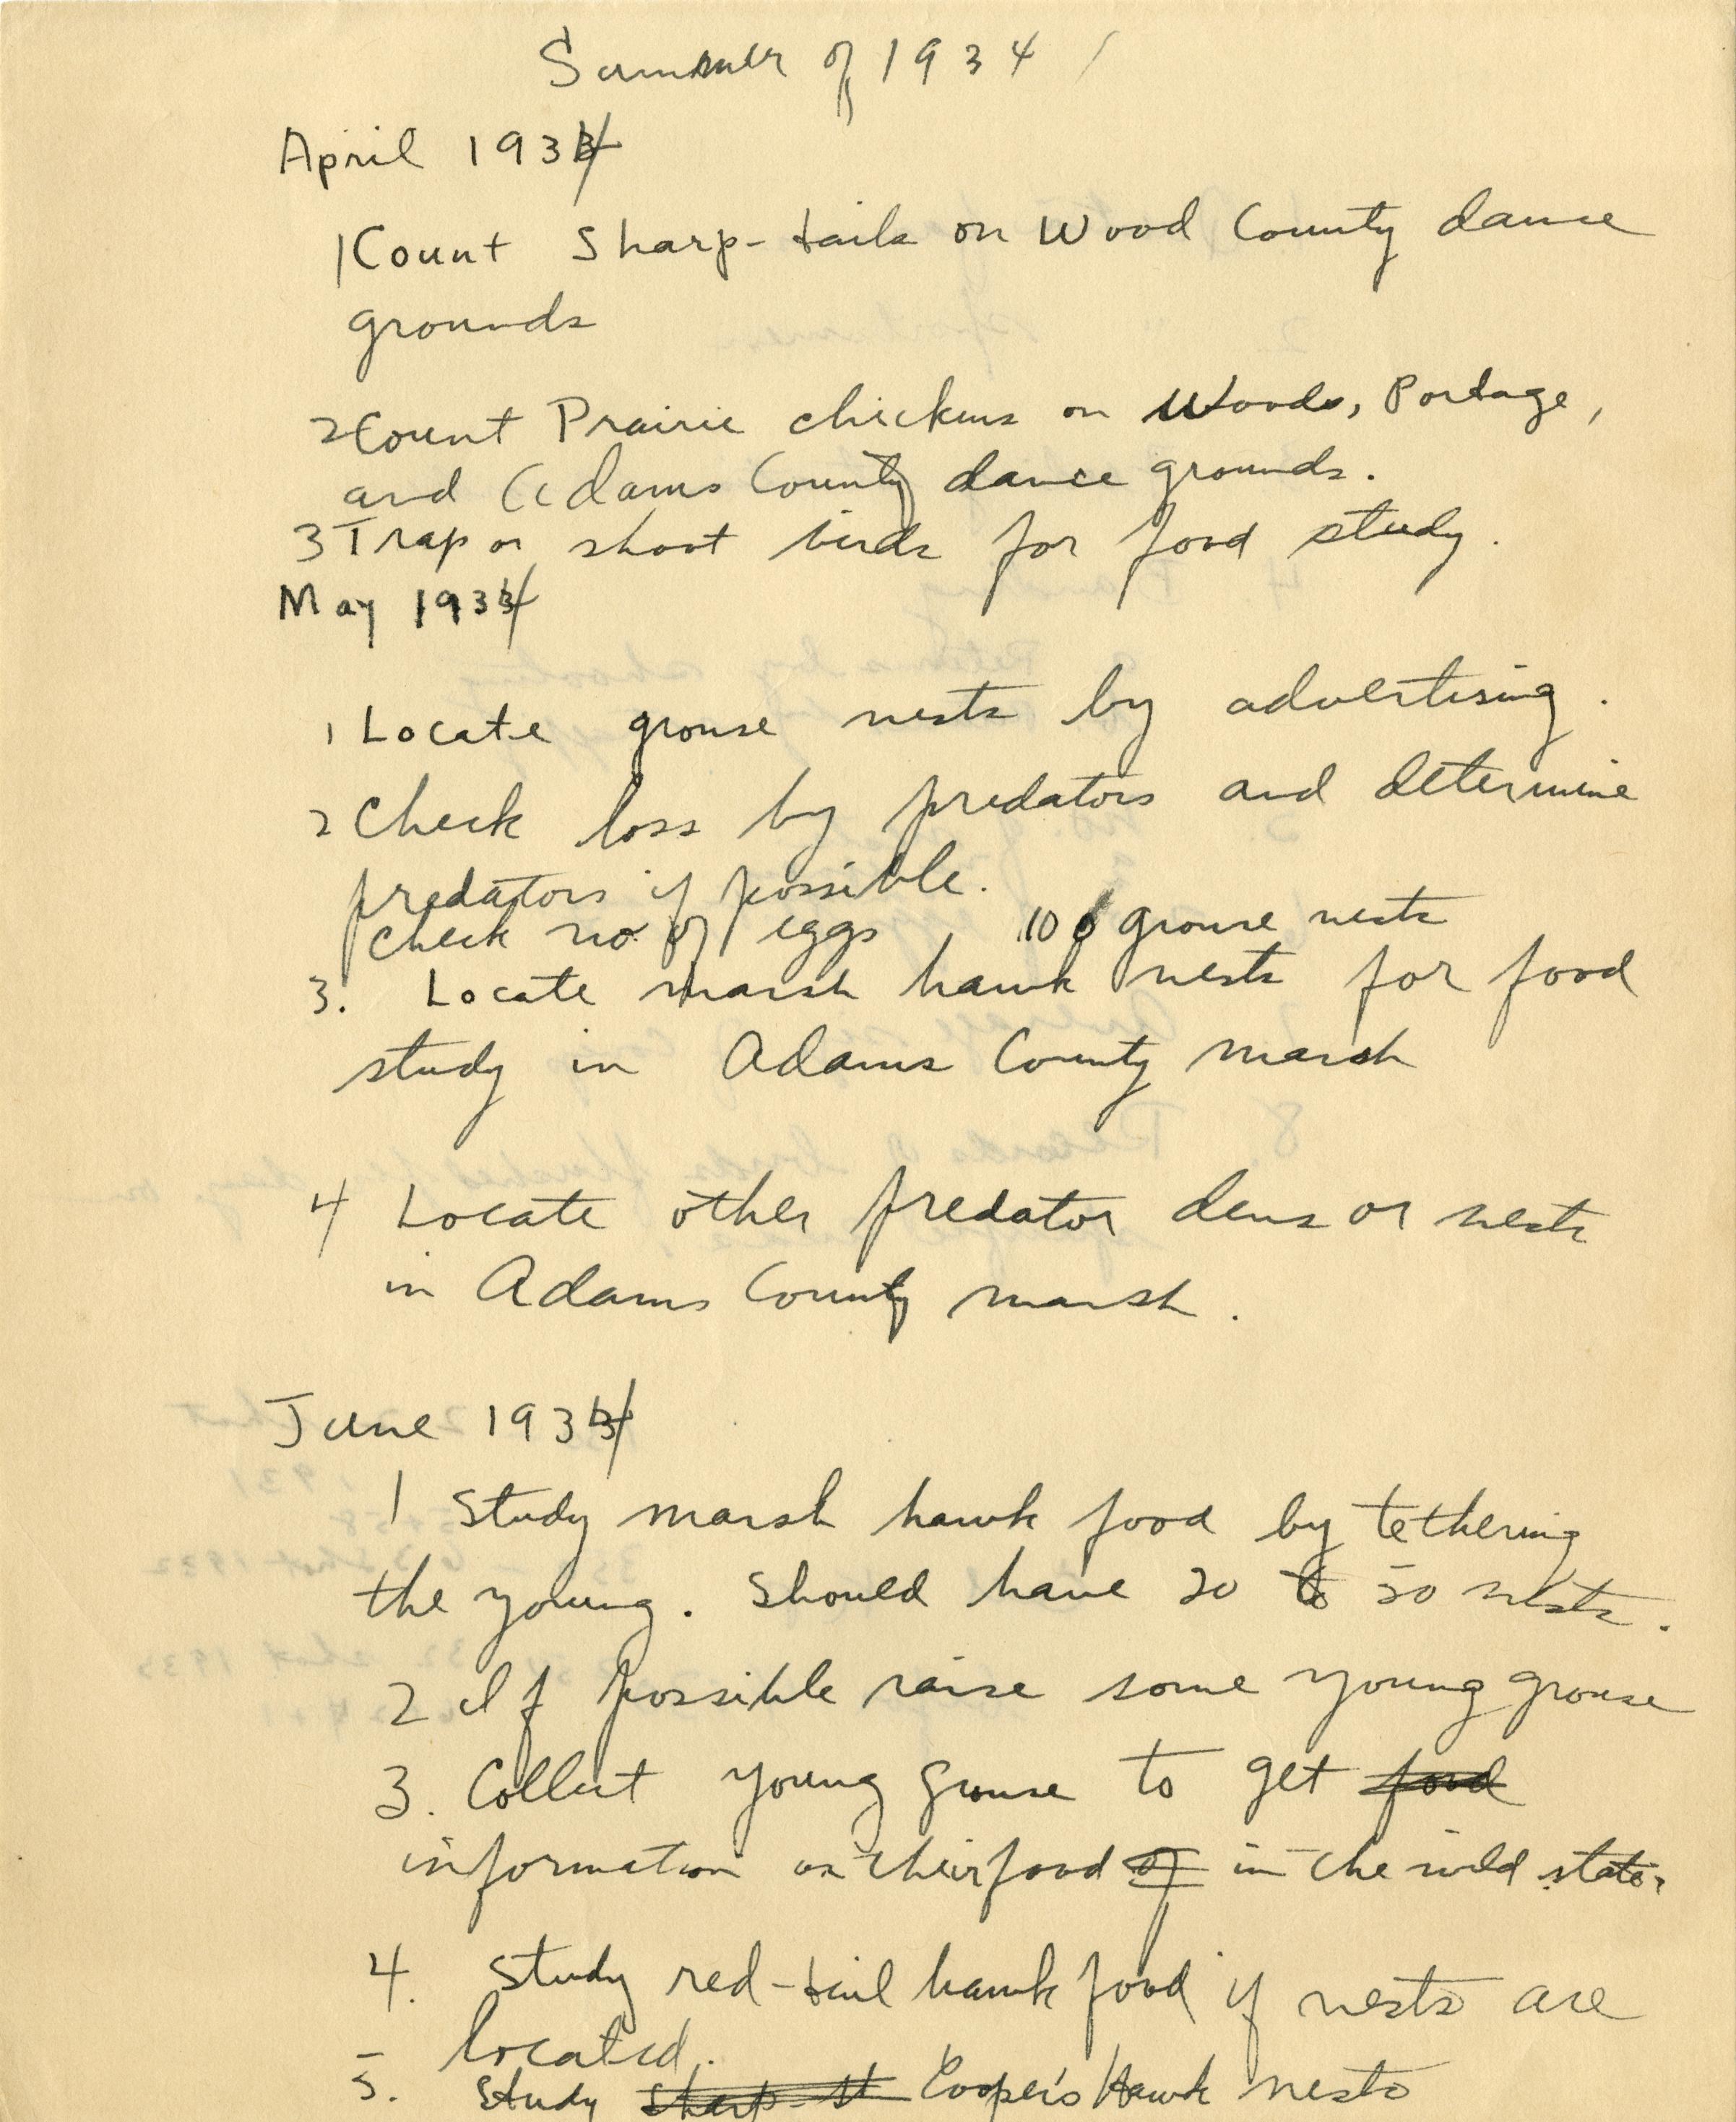 Summer of 1934
April 1934
1 Count Sharp-tails on Wood County dance
grounds
2 Count Prairie chickens on Wood, Portage,
and Adams County dance grounds.
3 Trap or shoot birds for food study.
May 1934
1 Locate grouse nests by advertising.
2 Check loss by predators and determine
predators if possible.
Check no. of eggs 100 grouse nests
3. Locate marsh hawk nests for food
study in Adams County marsh
4 Locate other predator dens or nests
in Adams County marsh.
June 1934
1 Study marsh hawk food by tethering
the young. Should have 20 to 50 nests.
2 If possible raise some young grouse
3. Collect young grouse to get food
information on their food of in the wild state.
4. Study red-tail hawk food if nests are
located.
5. Study Sharp-st Cooper's Hawk nests